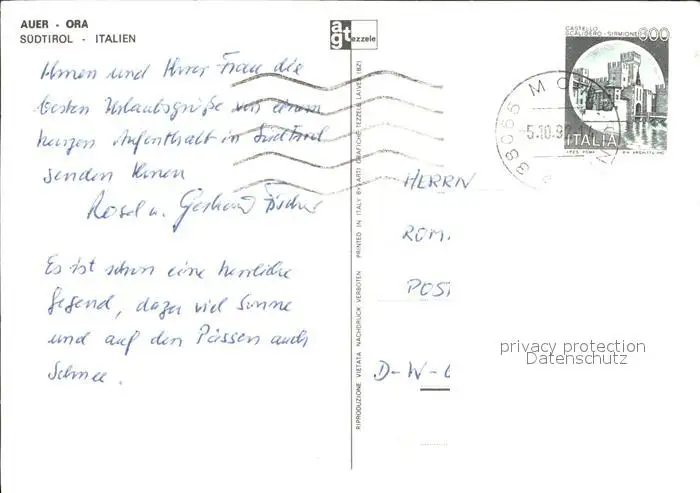 AUER - ORA
SÜDTIROL - ITALIEN
Ihnen und Ihrer Frau die
besten Urlaubsgrüße von einem
kurzen Aufenthalt in Südtirol
senden Ihnen
Rosel u. Gerhard Fischer
Es ist schon eine herrliche
Gegend, dazu viel Sonne
und auf den Pässen auch
Schnee.
agt
ezzele
RIPRODUZIONE VIETATA NACHDRUCK VERBOTEN PRINTED IN ITALY BY ARTI GRAFICHE TEZZELE LAIVES (BZ)
CASTELLO
SCALIGERO - SIRMIONE
600
ITALIA
5.10.92
HERRN
ROM.
POST
D-W-
privacy protection
Datenschutz